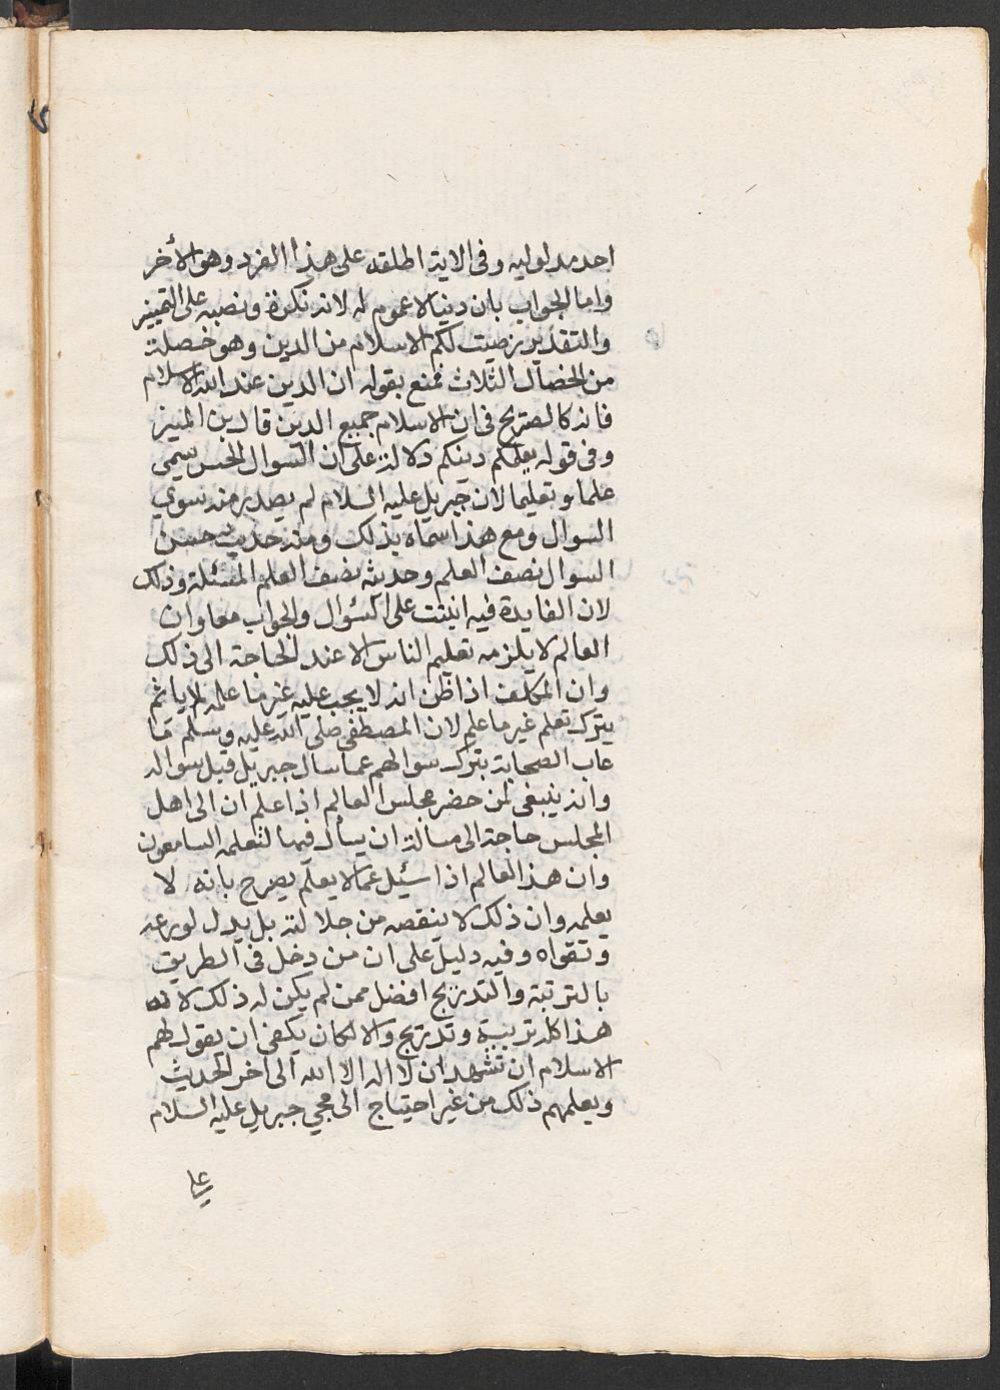 احد مدلوليه وفى الاية اطلقه على هذا الفرد وهو الأخر
واما الجواب بان دينا لا عموم له لانه نكرة ونصبه على التمييز
والتقدير رضيت لكم الاسلام من الدين وهو خصلة
من الخصال الثلاث فمنع بقوله ان الدين عند الله الاسلام
فانه كالصريح فى ان الاسلام جميع الدين قال بن المنير
وفى قوله يعلمكم دينكم دلالة على ان السوال الحسن يسمى
علما وتعليما لان جبريل عليه السلام لم يصدر منه سوي
السوال ومع هذا سماه بذلك ومنه حديث حسن
السوال نصف العلم وحديثه نصف العلم المسئلة وذلك
لان الفايدة فيه انبنت على السئوال والجواب معا وان
العالم لا يلزمه تعليم الناس الا عند الحاجة الى ذلك
وان المكلف اذا ظن انه لا يجب عليه غير ما علمه لم ياثم
بترك تعلم غير ما علم لان المصطفى صلى الله عليه وسلم ما
عاب الصحابة بترك سوالهم عما سال جبريل قبل سواله
وانه ينبغى لمن حضر مجلس العالم اذا علم ان الى اهل
المجلس حاجة الى مسالة ان يسأل فيها لتعلمه السامعون
وان هذا العالم اذا سئيل عما لا يعلم يصرح بانه لا
يعلمه وان ذلك لا ينقصه من جلالته بل يدل لورعه
وتقواه وفيه دليل على ان من دخل فى الطريق
بالترتبة والتدريج افضل ممن لم يكن له ذلك لانه
هذا كله تربية وتدريج والا لكان يكفى ان يقول لهم
الاسلام ان تشهد ان لا اله الا الله الى اخر الحديث
ويعلمهم ذلك من غير احتياج الى مجي جبريل عليه السلام